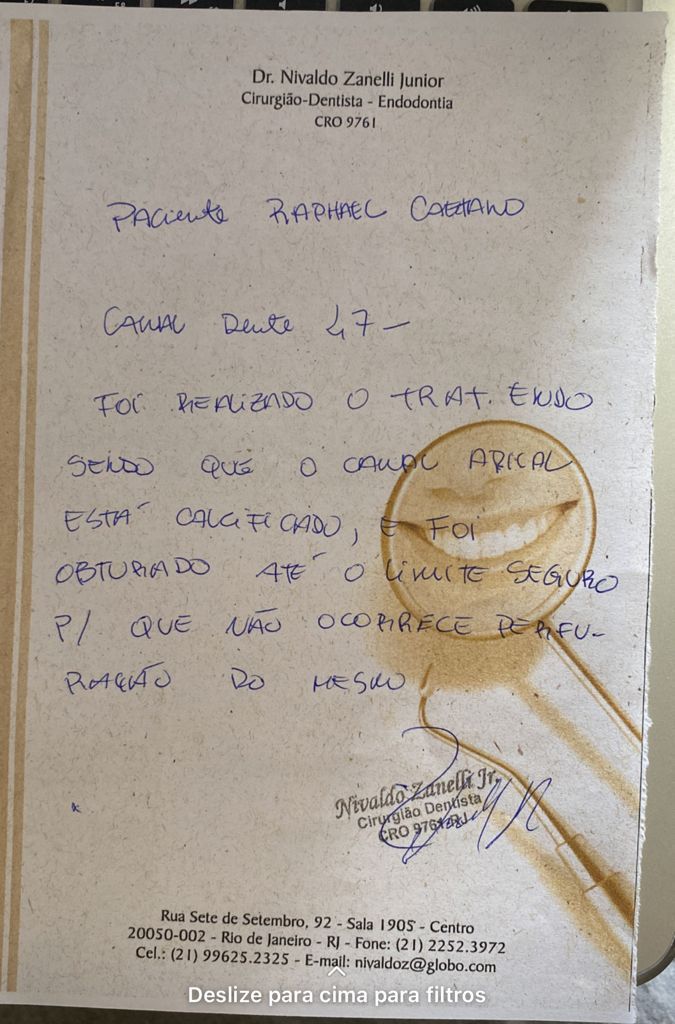 Dr. Nivaldo Zanelli Junior
Cirurgião-Dentista - Endodontia
CRO 9761
Paciente RAPHAEL CAETANO
CANAL Dente 47 -
FOI REALIZADO O TRAT. ENDO
SENDO QUE O CANAL APICAL
ESTÁ CALCIFICADO, E FOI
OBTURADO ATÉ O LIMITE SEGURO
P/ QUE NÃO OCORRECE PERFU-
RAÇÃO DO MESMO
Nivaldo Zanelli Jr.
Cirurgião Dentista
CRO 9761-RJ
Rua Sete de Setembro, 92 - Sala 1905 - Centro
20050-002 - Rio de Janeiro - RJ - Fone: (21) 2252.3972
Cel.: (21) 99625.2325 - E-mail: nivaldoz@globo.com
Deslize para cima para filtros